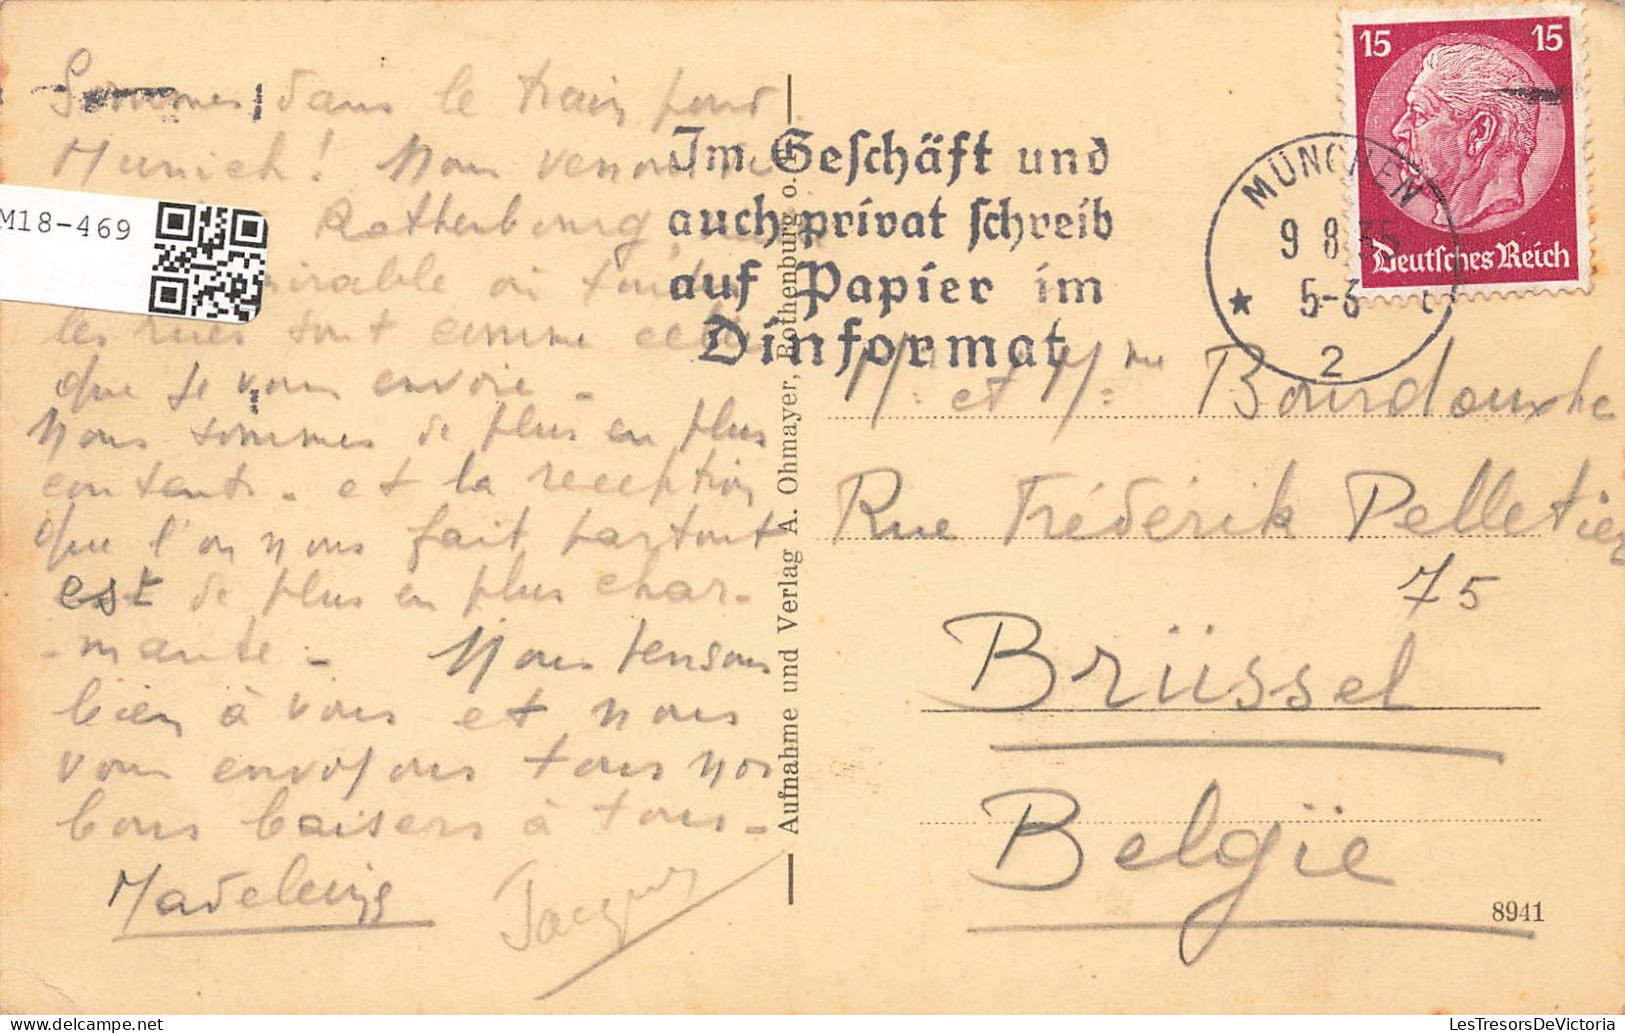 Sommes dans le train pour
Munich! Nous venons de
Rothenbourg
mirable où toutes
les rues sont comme celle
que je vous envoie -
Nous sommes de plus en plus
contents - et la reception
que l'on nous fait partout
est de plus en plus char-
-mante - Nous pensons
bien à vous et nous
vous envoyons tous nos
bons baisers à tous -
Madeleine Jacques
Aufnahme und Verlag A. Ohmayer, Rothenburg o.
Im Geschäft und
auch privat schreib
auf Papier im
Dinformat
MÜNCHEN
9 8.35
5-6
2
15 15
Deutsches Reich
M. et Mme Bourdouxhe
Rue Frédérik Pelletier
75
Brüssel
Belgïe
8941
M18-469
LesTresorsDeVictoria